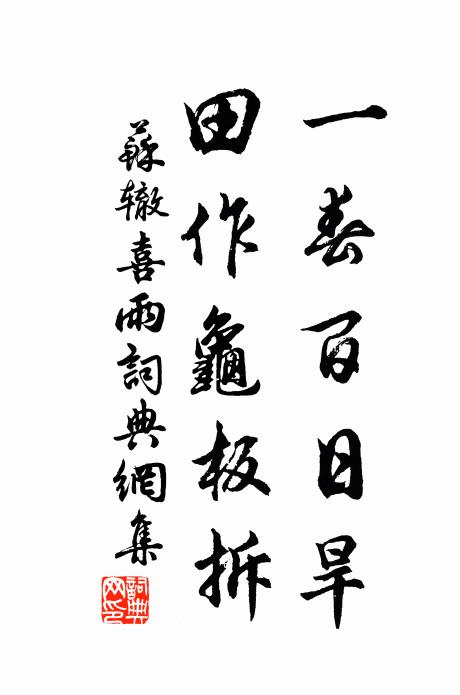 一春百日旱
田作龜板拆
蘇辙喜雨詞典網集
詞典網印